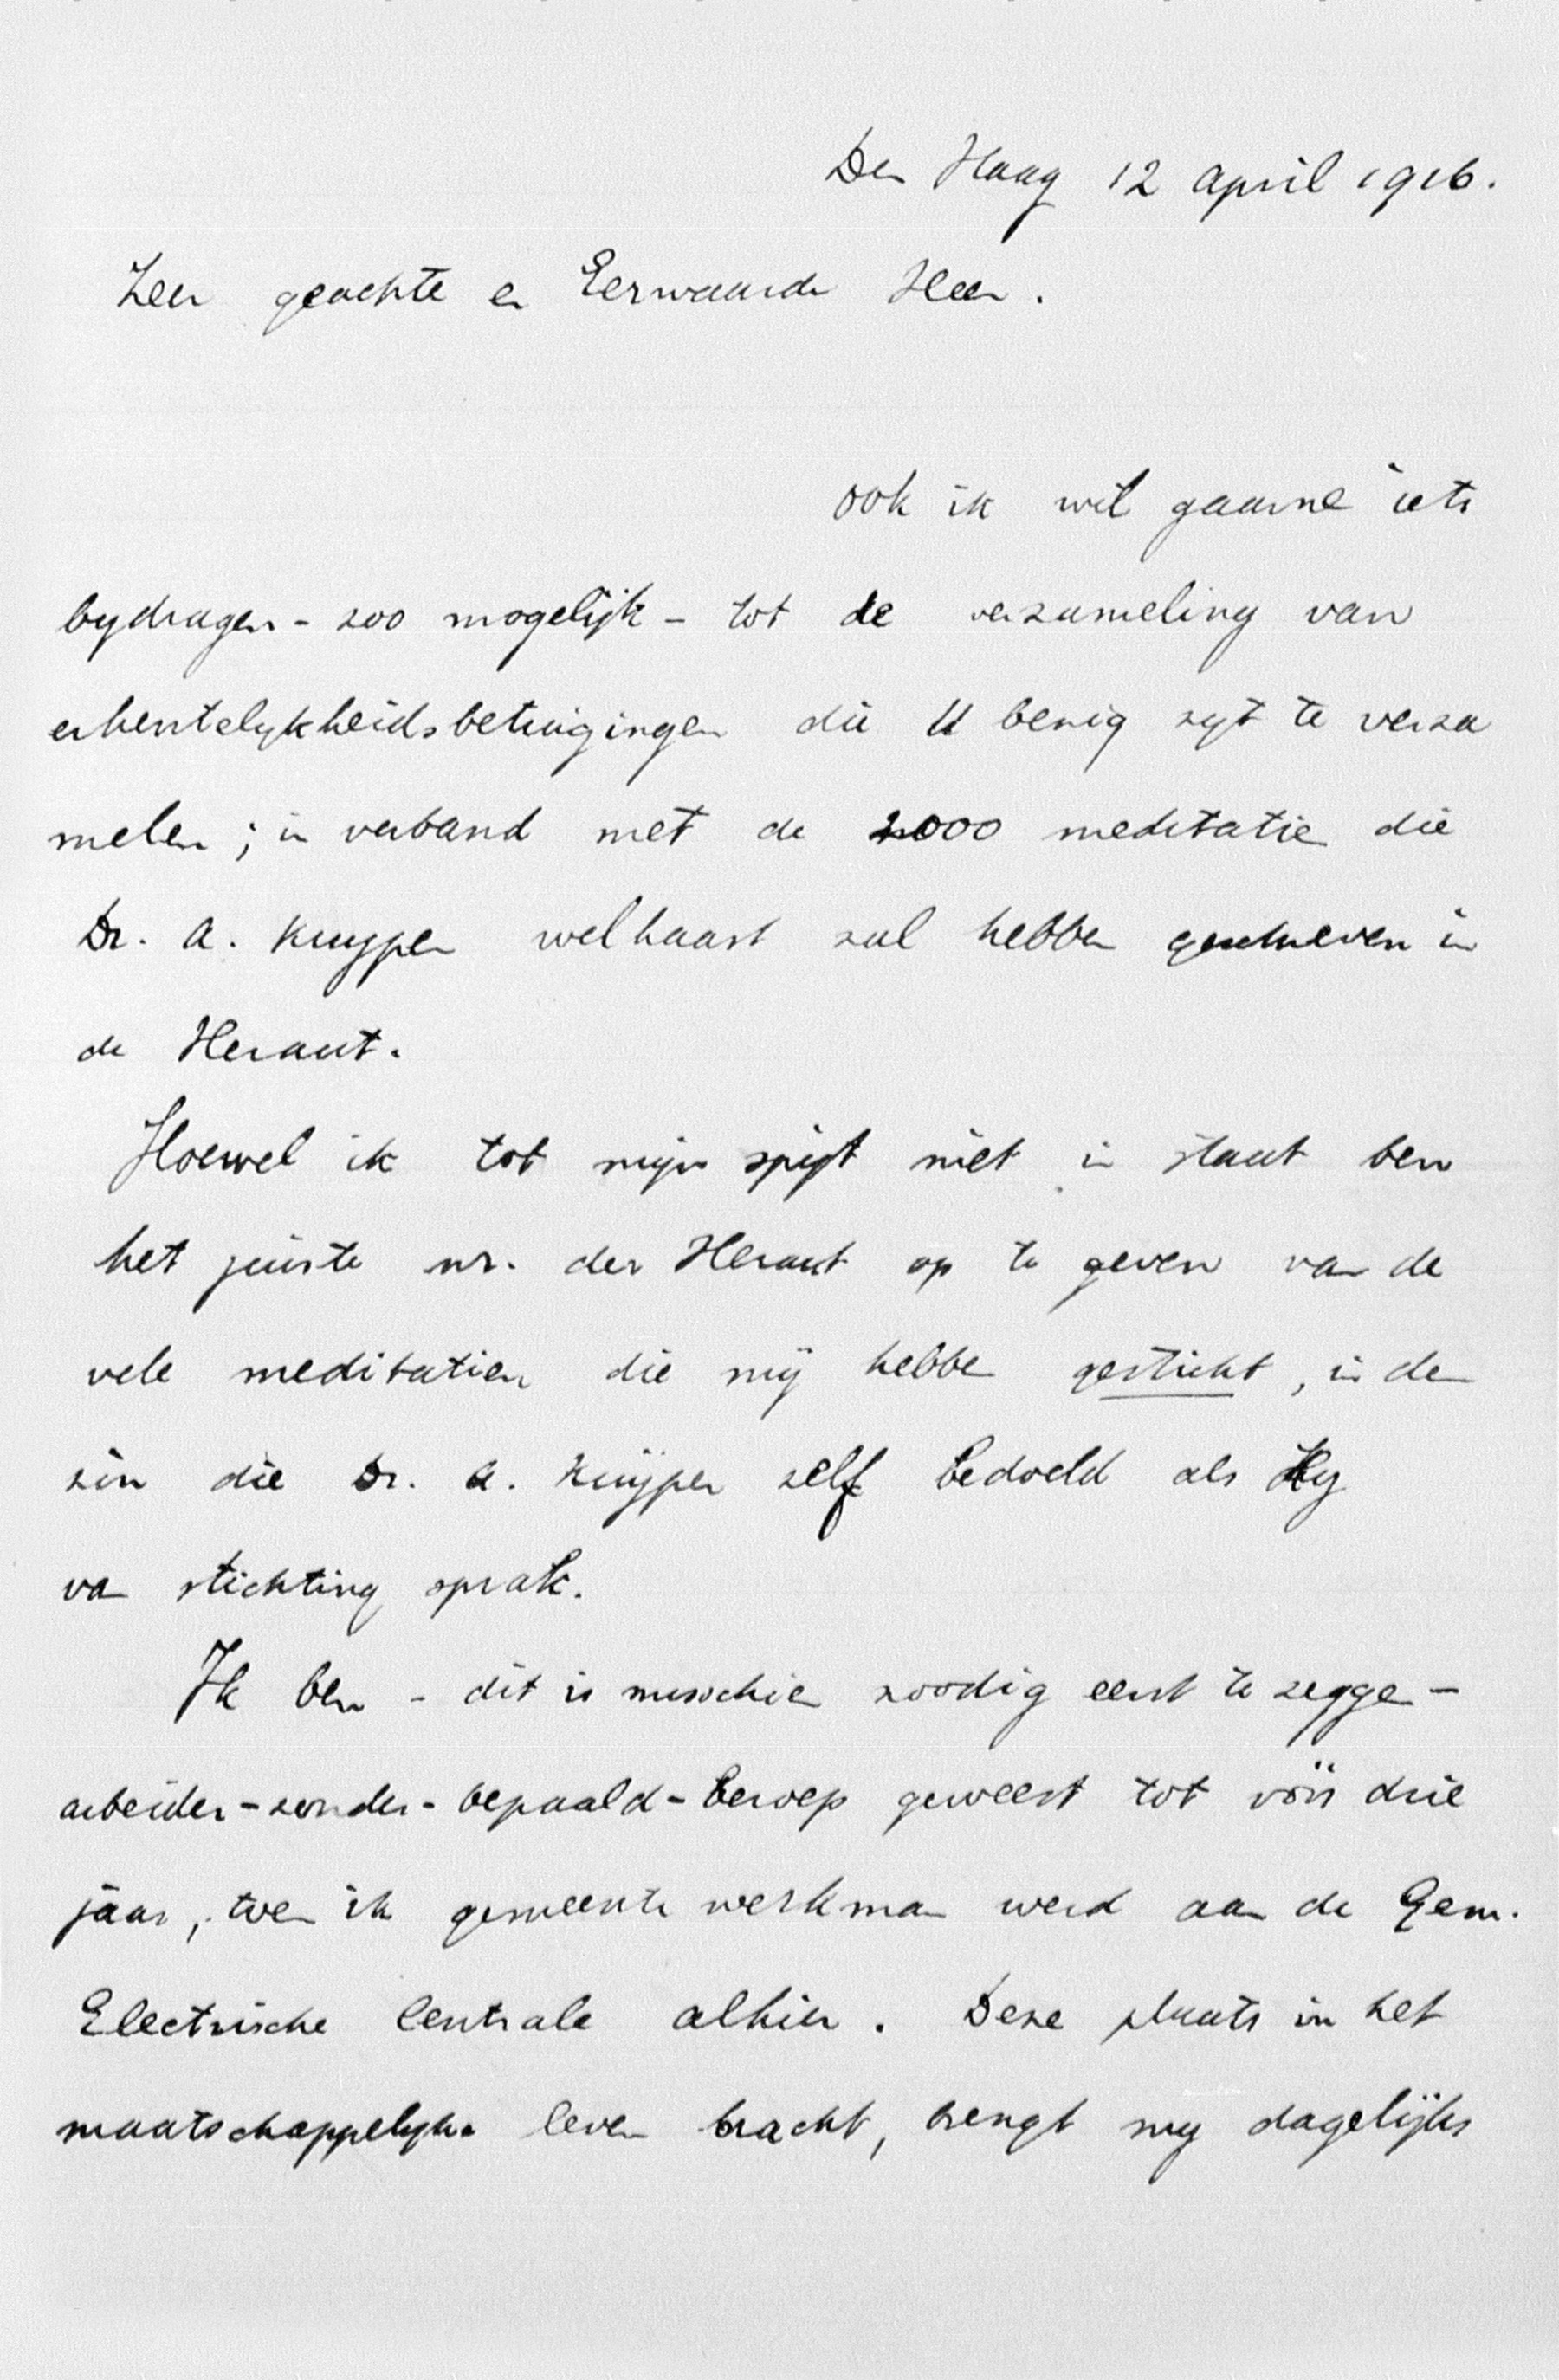 Den Haag 12 april 1916.
Zeer geachte en Eerwaarde Heer.
ook ik wil gaarne iets
bydragen - zoo mogelijk - tot de verzameling van
erkentelykheidsbetuigingen die U bezig zyt te verza
melen; in verband met de 2000 meditatie die
Dr. A. Kuyper welhaast zal hebben geschreven in
de Heraut.
Hoewel ik tot mijn spijt niet in staat ben
het juiste nr. der Heraut op te geven van de
vele meditatien die mij hebben gesticht, in den
zin die Dr. A. Kuijper zelf bedoeld als Hy
van stichting sprak.
Ik ben - dit is misschien noodig eerst te zeggen -
arbeider-zonder-bepaald-beroep geweest tot vóór drie
jaar, toen ik gemeente werkman werd aan de Gem.
Electrische Centrale alhier. Deze plaats in het
maatschappelyke leven bracht, brengt my dagelijks